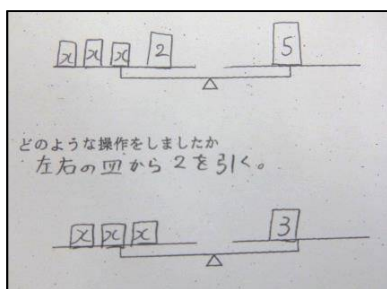 x x x 2 5
どのような操作をしましたか
左右の皿から2を引く。
x x x 3